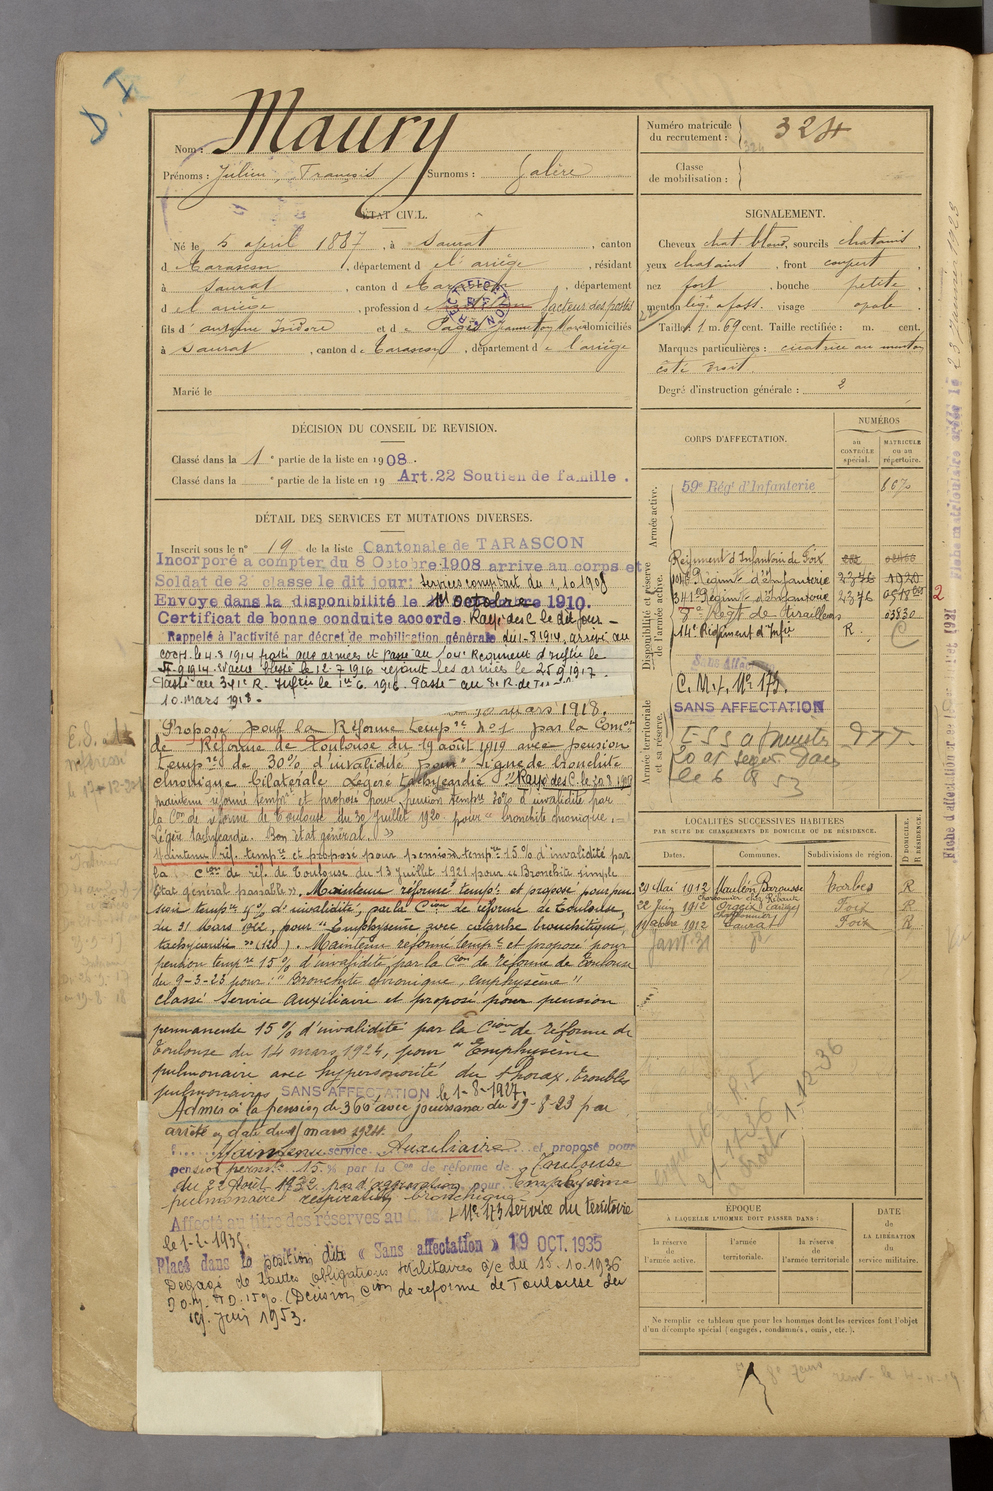 Nom : Maury
Prénoms : Julien, François Surnoms : Galère
Numéro matricule du recrutement : 324
Classe de mobilisation :
ÉTAT CIVIL.
Né le 5 april 1887, à Saurat, canton
d Tarascon, département d e l'ariège, résidant
à Saurat, canton d e Tarascon, département
d e l'ariège, profession de facteur des postes
fils d' antoine Isidore et de Pagès Jeanneton Marie domiciliés
à Saurat, canton d e Tarascon, département d e l'ariège
Marié le
SIGNALEMENT.
Cheveux chat. blond, sourcils chatains,
yeux chatains, front couvert,
nez fort, bouche petite,
menton visage ovale.
Taille : 1 m. 69 cent. Taille rectifiée : m. cent.
Marques particulières : cicatrice au menton
côté droit.
Degré d'instruction générale : 2
DÉCISION DU CONSEIL DE REVISION.
Classé dans la 1e partie de la liste en 1908.
Classé dans la e partie de la liste en 19 Art.22 Soutien de famille.
DÉTAIL DES SERVICES ET MUTATIONS DIVERSES.
Inscrit sous le n° 19 de la liste Cantonale de TARASCON
Incorporé à compter du 8 Octobre 1908 arrive au corps et
Soldat de 2e classe le dit jour: Services comptant du 1.10.1908
Envoyé dans la disponibilité le 1910.
Certificat de bonne conduite accordé. Rayé des C. le dit jour -
Rappelé à l'activité par décret de mobilisation générale du 1-8 1914, arrivé au
corps le 4 8 1914 parti aux armées et passé au Régiment d'Inftie le
9 1914. blessé le 12-7 1916 rejoint les armées le 25 9 1917.
Passé au 341e R. Inftie le 1er 6 1916. Passé au 8e R. de
10 mars 1918.
10 mars 1918.
Proposé pour la Réforme tempre n°1 par la Comon
de Réforme de Toulouse du 19 août 1919 avec pension
tempre de 30% d'invalidité pour "Signe de bronchite
chronique bilatérale Légère tachycardie" Rayé des C. le 20 8 1919
maintenu réformé tempre et proposé pour pension tempre 30% d'invalidité par
la Con de réforme de Toulouse du 30 juillet 1920 pour "bronchite chronique, -
Légère tachycardie. Bon état général."
Maintenu réf. tempre et proposé pour pension tempre 15% d'invalidité par
la Cion de réf. de Toulouse du 13 Juillet 1921 pour "Bronchite simple
Etat général passable". Maintenu réformé tempre et proposé pour pen
sion tempre % d'invalidité, par la Cion de réforme de Toulouse,
du 31 Mars 1922, pour "Emphysème avec catarrhe bronchitique,
tachycardie (120). Maintenu réformé tempre et proposé pour
pension tempre 15% d'invalidité par la Con de réforme de Toulouse
du 9-3-23 pour : "Bronchite chronique, emphysème"
classé Service auxiliaire et proposé pour pension
permanente 15% d'invalidité par la Cion de réforme de
Toulouse du 14 mars 1924, pour "Emphysème
pulmonaire avec hypersonorité du thorax, troubles
pulmonaires SANS AFFECTATION le 1-8-1927.
Admis à la pension de 360 avec jouissance du 19-8-23 par
arrêté en date du mars 1924.
Maintenu service Auxiliaire et proposé pour
pension perm. 15% par la Con de réforme de Toulouse
du 22 Août 1932 pour emphysème
pulmonaire
Affecté au titre des réserves au C. M. 4 No 173 service du territoire
le 1-2-193
Placé dans la position dite « Sans affectation » 19 OCT. 1935
Dégagé de toutes obligations Militaires a/c du 15.10.1936
(Décision Cion de réforme de Toulouse du
Juin 1953.
CORPS D'AFFECTATION.
NUMÉROS
au CONTRÔLE spécial.
MATRICULE ou au répertoire.
Armée active.
59e Rég' d'Infanterie
Disponibilité et réserve de l'armée active.
Régiment d'Infanterie de Foix
Régimt d'Infanterie 2376 1020
341e Régimt d'Infanterie 2376
8e Régt de Tirailleurs
14e Régiment d'Infie R. C
Armée territoriale et sa réserve.
Sans Affectation
C. M. 4. No 173.
SANS AFFECTATION
LOCALITÉS SUCCESSIVES HABITÉES
PAR SUITE DE CHANGEMENTS DE DOMICILE OU DE RÉSIDENCE.
Dates. Communes. Subdivisions de région. D DOMICILE. R RÉSIDENCE.
20 Mai 1912 Mauléon Barousse Tarbes R
22 Juin 1912 Orgeix Foix R
octobre 1912 Saurat Foix R
Janv. 31
ÉPOQUE
À LAQUELLE L'HOMME DOIT PASSER DANS :
DATE de LA LIBÉRATION du service militaire.
la réserve de l'armée active.
l'armée territoriale.
la réserve de l'armée territoriale
Ne remplir ce tableau que pour les hommes dont les services font l'objet
d'un décompte spécial (engagés, condamnés, omis, etc.).